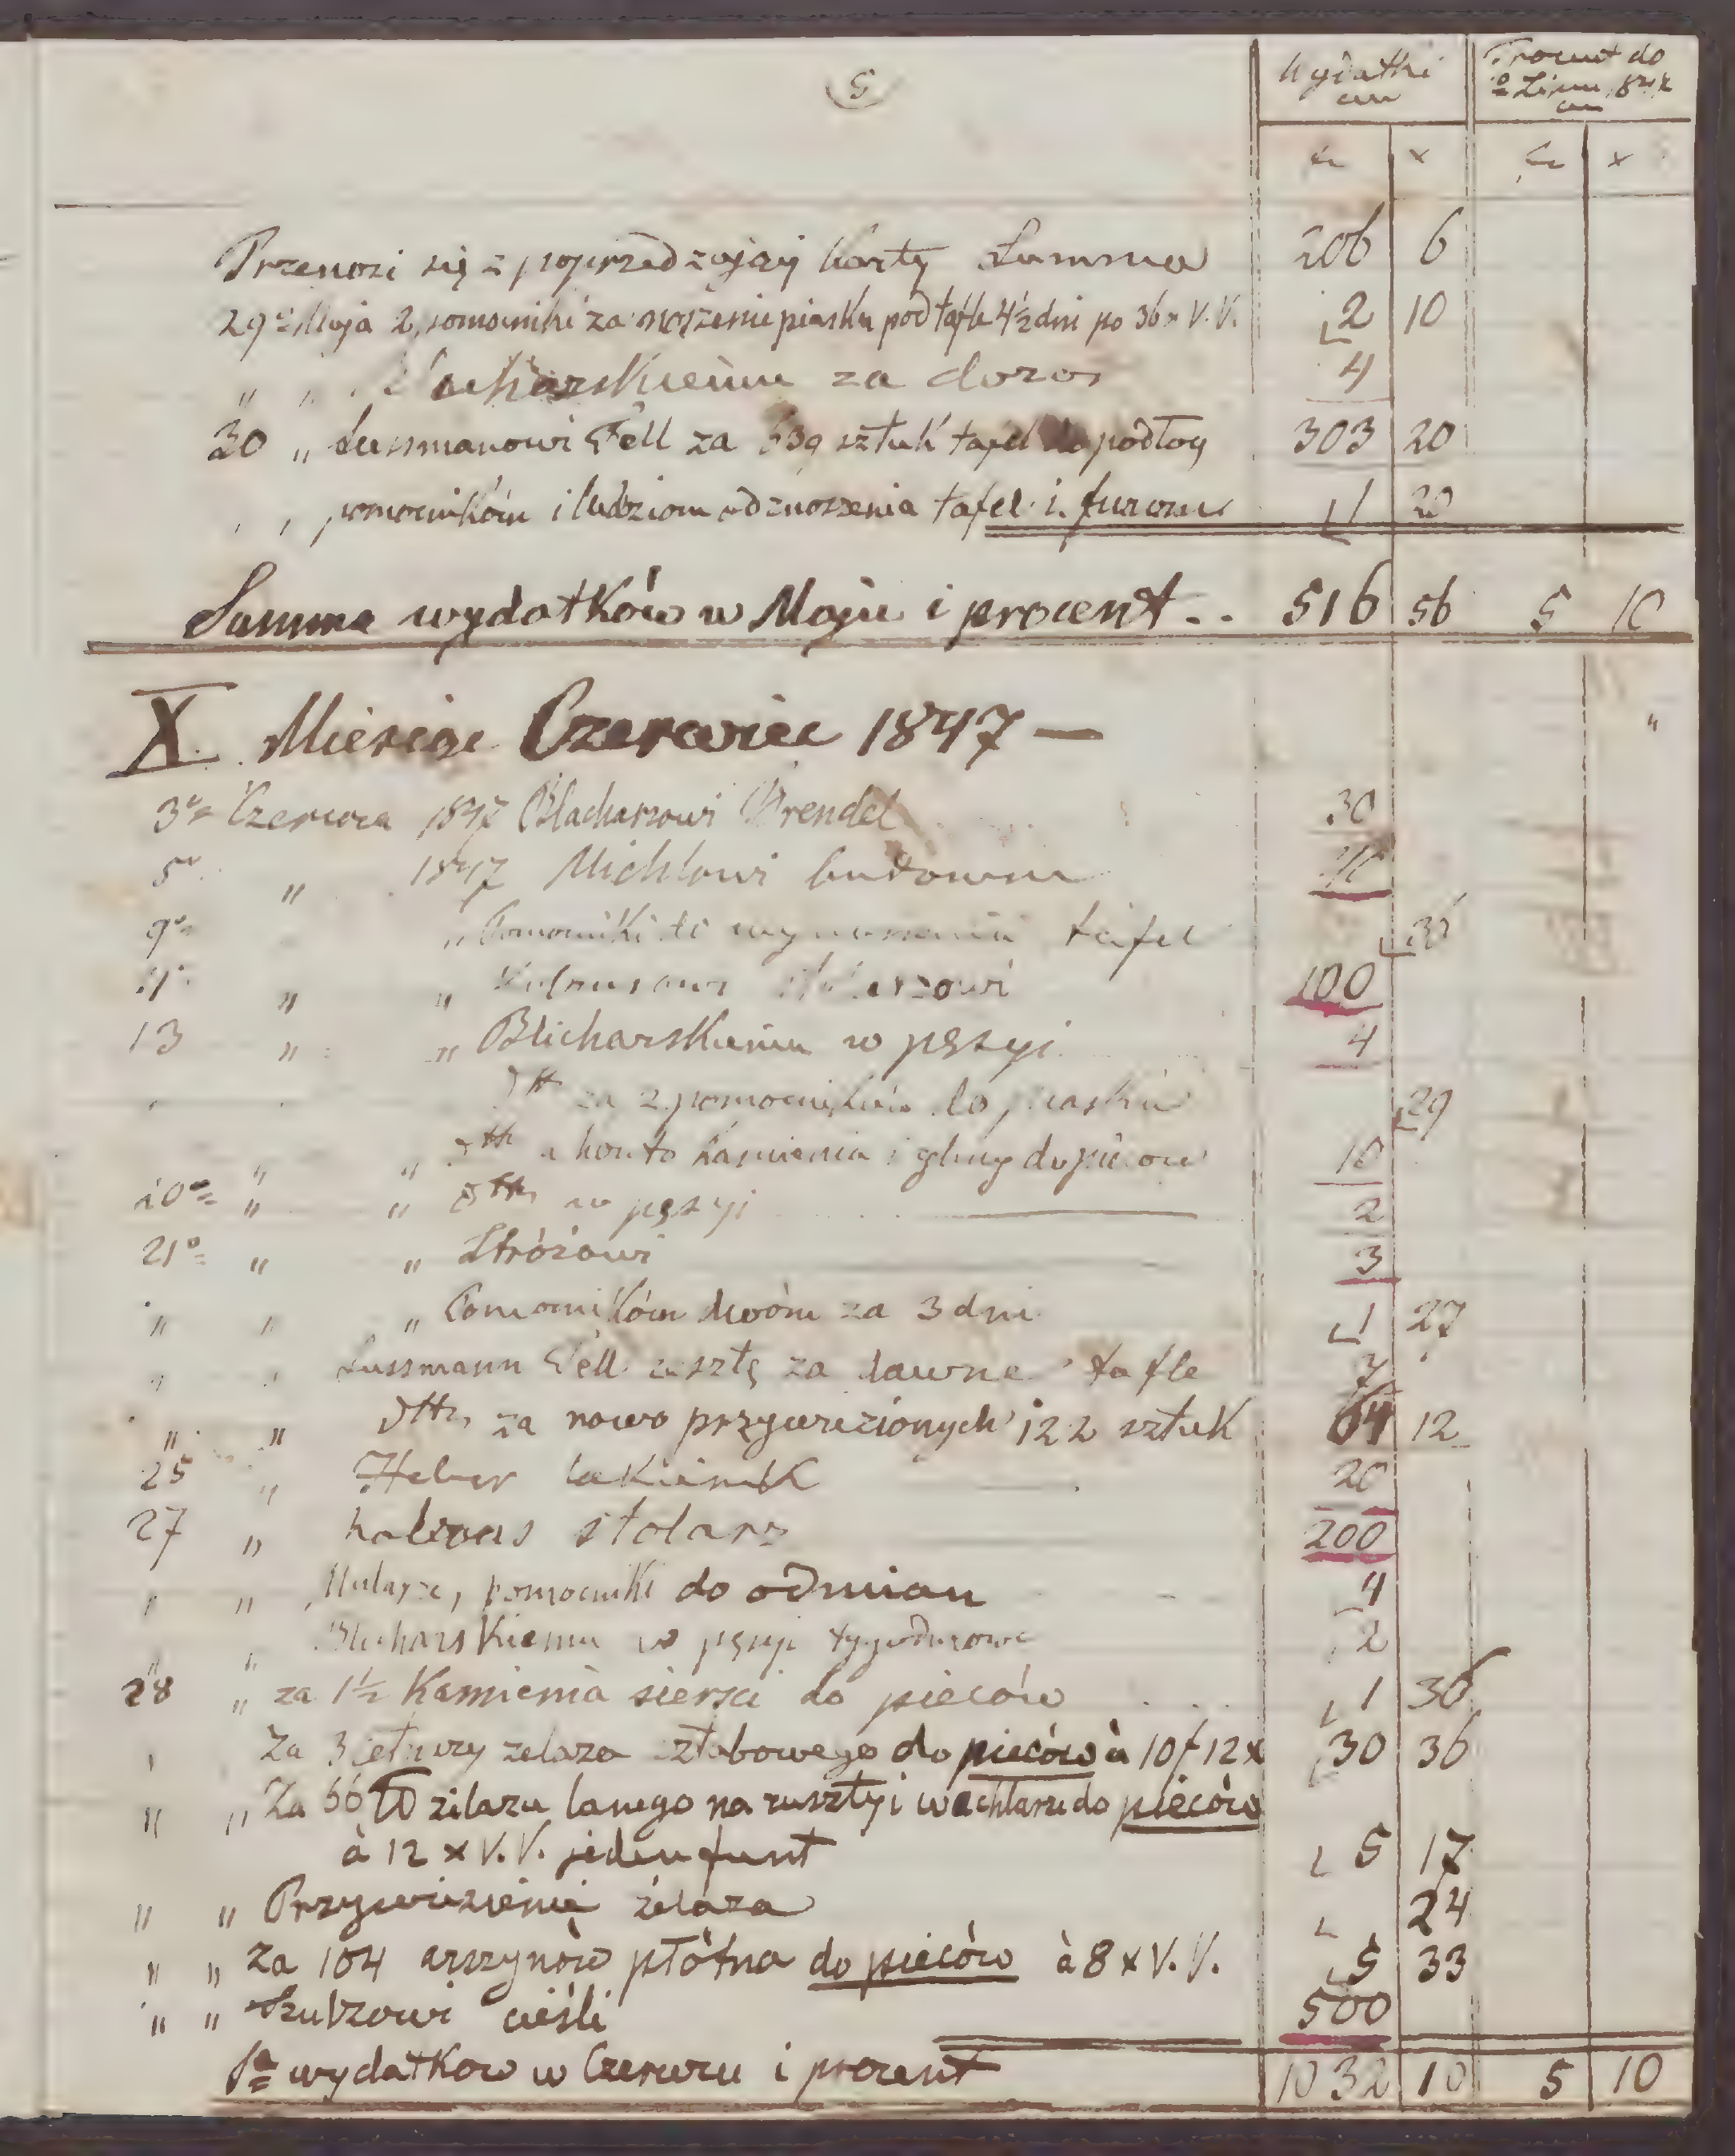 5
Wydatki Procent do
cm
fr x fr x
Przenosi się z poprzedzającej karty Summa 206 6
29º Maja 2 pomocniki za noszenie piasku pod tafle 4½ dni po 36 x V.V. 2 10
" " za dozor 4
30 " Lussmanowi Fell za 639 sztuk tafel do podłogi 303 20
" " pomocnikóm i ludziom od znoszenia tafel i furom 1 20
Summa wydatków w Maju i procent .. 516 56 5 10
X. Miesiąc Czerwiec 1847 —
3º Czerwca 1847 Blacharzowi Brendel 30
5º " 1847 Michlowi
9º " Pomocniki do wynoszenia tafel
11º " " 100
13 " " Blicharskiemu w pęsyi 4
dtto za 2 pomocników do piasku 29
" " dtto a konto kamienia i gliny do pieców 10
20º " " dtto w pęsyi 2
21º " " Stróżowi 3
" " " Pomocnikóm dwóm za 3 dni 1 27
" " Lussmann Fell resztę za dawne tafle 7
" " dtto za nowo przywiezionych 122 sztuk 64 12
25 " Heber lakiernik 20
27 " Kalwas stolarz 200
" " Mularze, pomocniki do odmian 4
" " Blicharskiemu w pęsyi tygodniowe 2
28 " za 1½ Kamienia siersci do pieców 1 36
" Za 3 cetnary zelaza sztabowego do pieców à 10 f 12 x 30 36
" " Za 66 ℔ zilaza lanego na ruszty i wachlarze do pieców
à 12 x V.V. jeden funt 5 17
" " Przywiezienie żelaza 24
" " Za 104 arszynów płótna do pieców à 8 x V.V. 5 33
" " Szulzowi cieśli 500
Sª wydatkow w Czerwcu i procent 1032 10 5 10